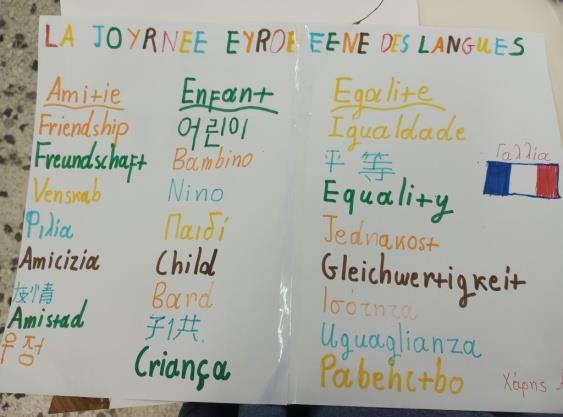 LA JOYRNEE EYROPEENE DES LANGUES
Amitie
Friendship
Freundschaft
Venskab
Φιλία
Amicizia
友情
Amistad
우정
Enfant
어린이
Bambino
Nino
Παιδί
Child
Barn
子供
Criança
Egalite
Igualdade
平等
Equality
Jednakost
Gleichwertigkeit
Ισότητα
Uguaglianza
Равенство
Γαλλία
Χάρης